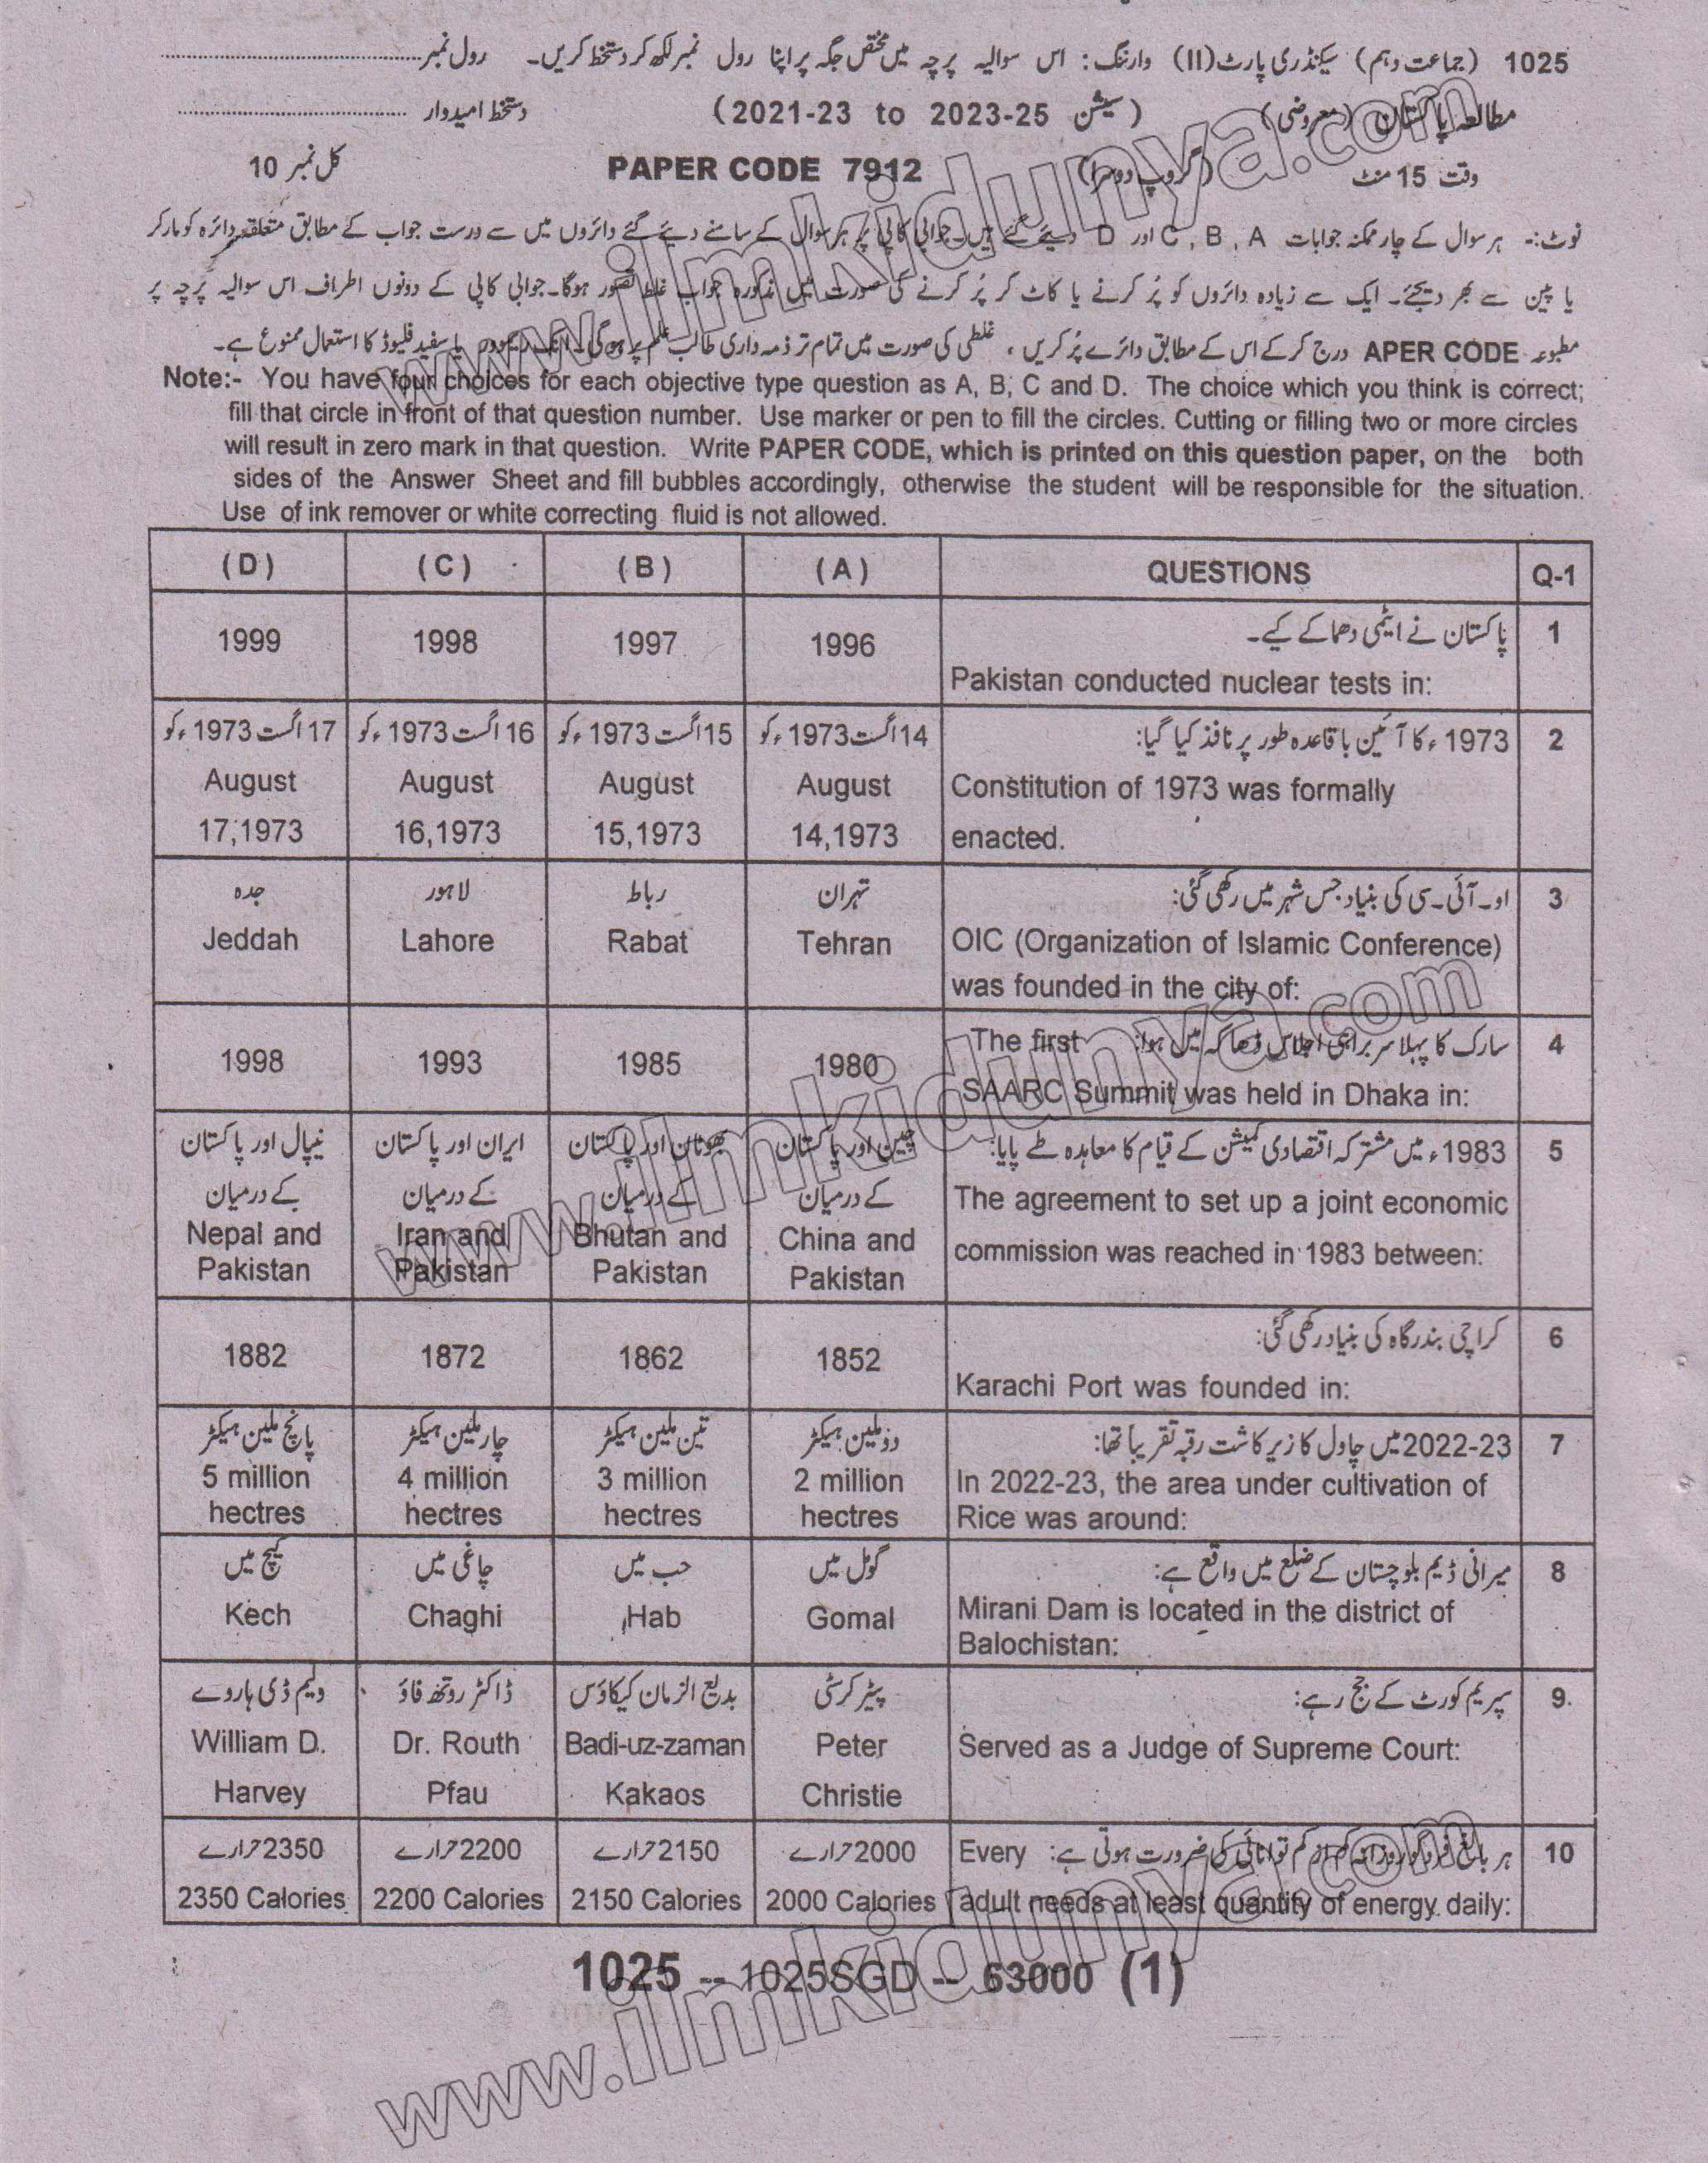 1025 (جماعت دہم) سیکنڈری پارٹ(II) وارننگ: اس سوالیہ پرچہ میں مختص جگہ پر اپنا رول نمبر لکھ کر دستخط کریں۔ رول نمبر
مطالعہ پاکستان (معروضی) (سیشن 2021-23 to 2023-25) دستخط امیدوار
وقت 15 منٹ (گروپ دوسرا) PAPER CODE 7912 کل نمبر 10
نوٹ:- ہر سوال کے چار ممکنہ جوابات A , B , C اور D دیئے گئے ہیں۔ جوابی کاپی پر ہر سوال کے سامنے دیئے گئے دائروں میں سے درست جواب کے مطابق متعلقہ دائرہ کو مارکر
یا پین سے بھر دیجئے۔ ایک سے زیادہ دائروں کو پُر کرنے یا کاٹ کر پُر کرنے کی صورت میں مذکورہ جواب غلط تصور ہوگا۔ جوابی کاپی کے دونوں اطراف اس سوالیہ پرچہ پر
مطبوعہ APER CODE درج کر کے اس کے مطابق دائرے پُر کریں ، غلطی کی صورت میں تمام تر ذمہ داری طالب علم پر ہوگی۔ انک ریموور یا سفید فلیوڈ کا استعمال ممنوع ہے۔
Note:- You have four choices for each objective type question as A, B, C and D. The choice which you think is correct;
fill that circle in front of that question number. Use marker or pen to fill the circles. Cutting or filling two or more circles
will result in zero mark in that question. Write PAPER CODE, which is printed on this question paper, on the both
sides of the Answer Sheet and fill bubbles accordingly, otherwise the student will be responsible for the situation.
Use of ink remover or white correcting fluid is not allowed.
(D) (C) (B) (A) QUESTIONS Q-1
پاکستان نے ایٹمی دھماکے کیے۔ 1
1999 1998 1997 1996
Pakistan conducted nuclear tests in:
17 اگست 1973ء کو 16 اگست 1973ء کو 15 اگست 1973ء کو 14 اگست 1973ء کو 1973ء کا آئین باقاعدہ طور پر نافذ کیا گیا: 2
August August August August Constitution of 1973 was formally
17,1973 16,1973 15,1973 14,1973 enacted.
جدہ لاہور رباط تہران او۔آئی۔سی کی بنیاد جس شہر میں رکھی گئی: 3
Jeddah Lahore Rabat Tehran OIC (Organization of Islamic Conference)
was founded in the city of:
سارک کا پہلا سربراہی اجلاس ڈھاکہ میں ہوا: The first 4
1998 1993 1985 1980
SAARC Summit was held in Dhaka in:
نیپال اور پاکستان ایران اور پاکستان بھوٹان اور پاکستان چین اور پاکستان 1983ء میں مشترکہ اقتصادی کمیشن کے قیام کا معاہدہ طے پایا: 5
کے درمیان کے درمیان کے درمیان کے درمیان The agreement to set up a joint economic
Nepal and Iran and Bhutan and China and commission was reached in 1983 between:
Pakistan Pakistan Pakistan Pakistan
کراچی بندرگاہ کی بنیاد رکھی گئی: 6
1882 1872 1862 1852
Karachi Port was founded in:
پانچ ملین ہیکٹر چار ملین ہیکٹر تین ملین ہیکٹر دو ملین ہیکٹر 2022-23 میں چاول کا زیر کاشت رقبہ تقریباً تھا: 7
5 million 4 million 3 million 2 million In 2022-23, the area under cultivation of
hectres hectres hectres hectres Rice was around:
کیچ میں چاغی میں حب میں گومل میں میرانی ڈیم بلوچستان کے ضلع میں واقع ہے: 8
Kech Chaghi Hab Gomal Mirani Dam is located in the district of
Balochistan:
ولیم ڈی ہاروے ڈاکٹر روتھ فاؤ بدیع الزمان کیکاؤس پیٹر کرسٹی سپریم کورٹ کے جج رہے: 9
William D. Dr. Routh Badi-uz-zaman Peter Served as a Judge of Supreme Court:
Harvey Pfau Kakaos Christie
2350 حرارے 2200 حرارے 2150 حرارے 2000 حرارے ہر بالغ فرد کو روزانہ کم از کم توانائی کی ضرورت ہوتی ہے: Every 10
2350 Calories 2200 Calories 2150 Calories 2000 Calories adult needs at least quantify of energy daily:
1025 -- 1025SGD -- 63000 (1)
www.ilmkidunya.com
www.ilmkidunya.com
www.ilmkidunya.com